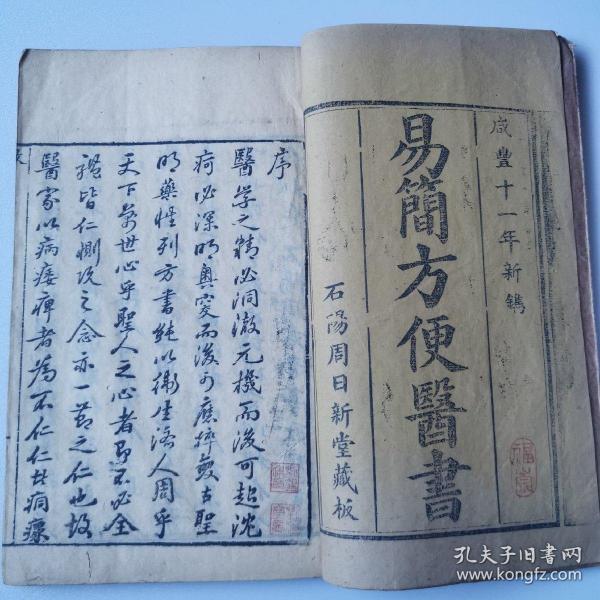 咸豐十一年新鐫
易簡方便醫書
石陽周日新堂藏板
序
醫学之精必洞澈元機而後可起沈
疴必深明奥窔而後可應猝變古聖
明藥性列方書純以衛生濟人周乎
天下萬世心乎聖人之心者即不必全
體皆仁惻怛之念亦一節之仁也故
醫家以病痿痺者為不仁仁此痌瘝
孔夫子旧书网
www.kongfz.com